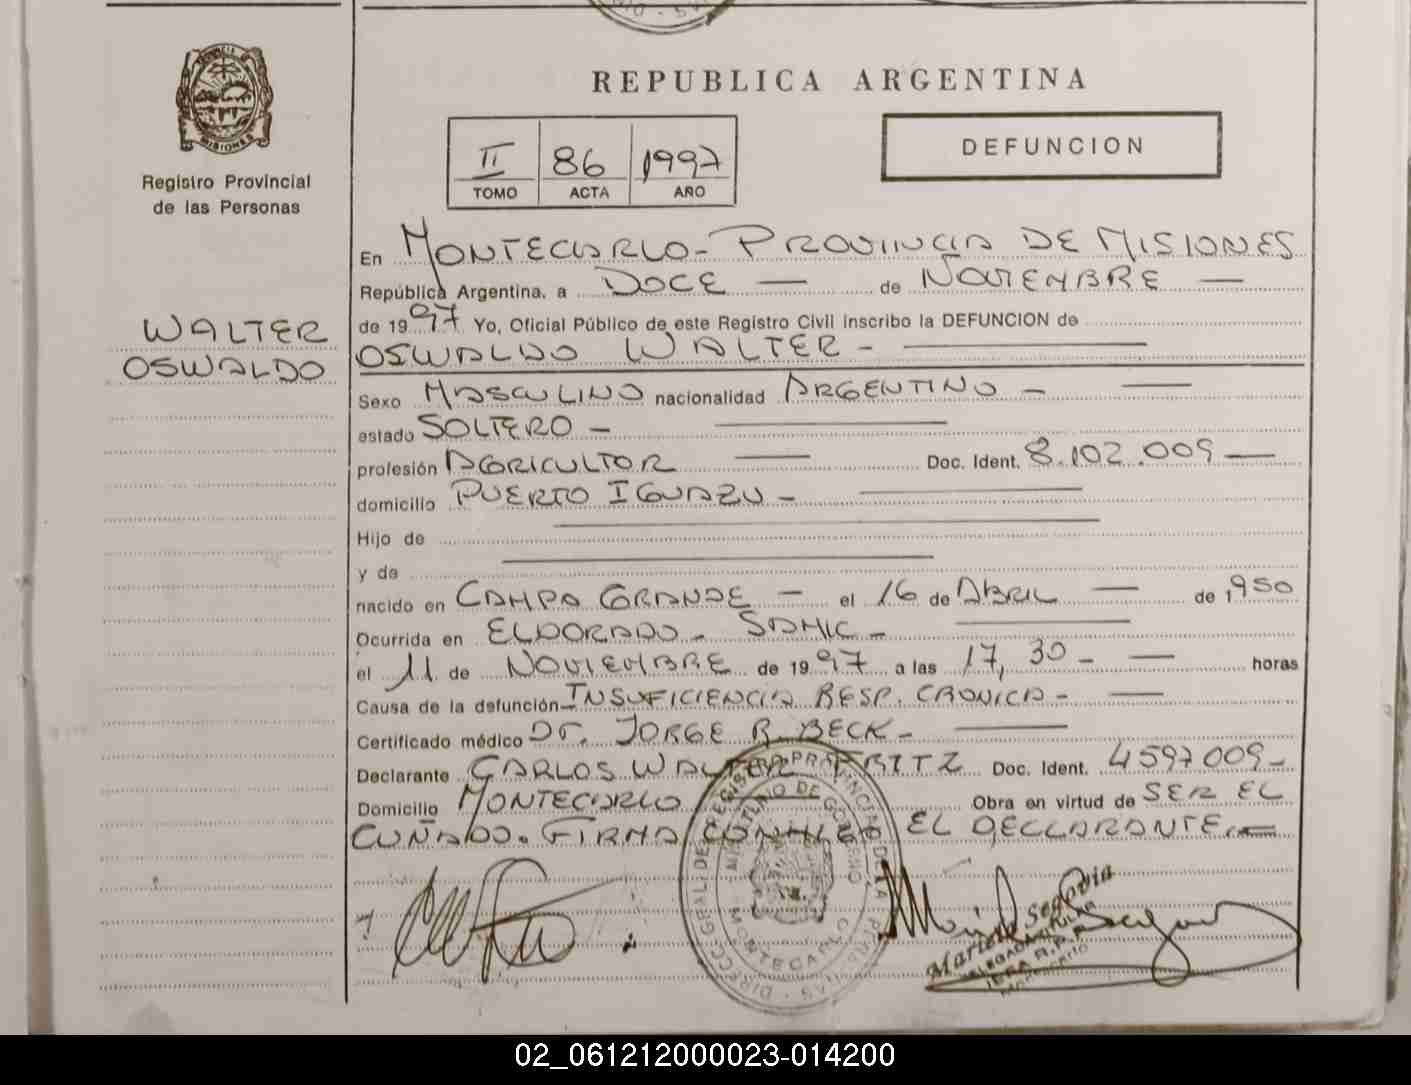 REPUBLICA ARGENTINA
MISIONES
Registro Provincial
de las Personas
II 86 1997
TOMO ACTA AÑO
DEFUNCION
WALTER
OSWALDO
En MONTECARLO - PROVINCIA DE MISIONES
República Argentina, a DOCE — de NOVIEMBRE —
de 1997 Yo, Oficial Público de este Registro Civil inscribo la DEFUNCION de
OSWALDO WALTER -
Sexo MASCULINO nacionalidad ARGENTINO -
estado SOLTERO -
profesión AGRICULTOR — Doc. Ident. 8.102.009 —
domicilio PUERTO IGUAZU -
Hijo de
y de
nacido en CAMPO GRANDE - el 16 de ABRIL — de 1950
Ocurrida en ELDORADO - SAMIC -
el 11 de NOVIEMBRE de 1997 a las 17,30 - — horas
Causa de la defunción INSUFICIENCIA RESP. CRONICA -
Certificado médico Dr. JORGE R. BECK -
Declarante CARLOS WALTER FRITZ Doc. Ident. 4597009 -
Domicilio MONTECARLO Obra en virtud de SER EL
CUÑADO. FIRMA CONMIGO EL DECLARANTE. —
MONTECARLO
Segovia
02_061212000023-014200